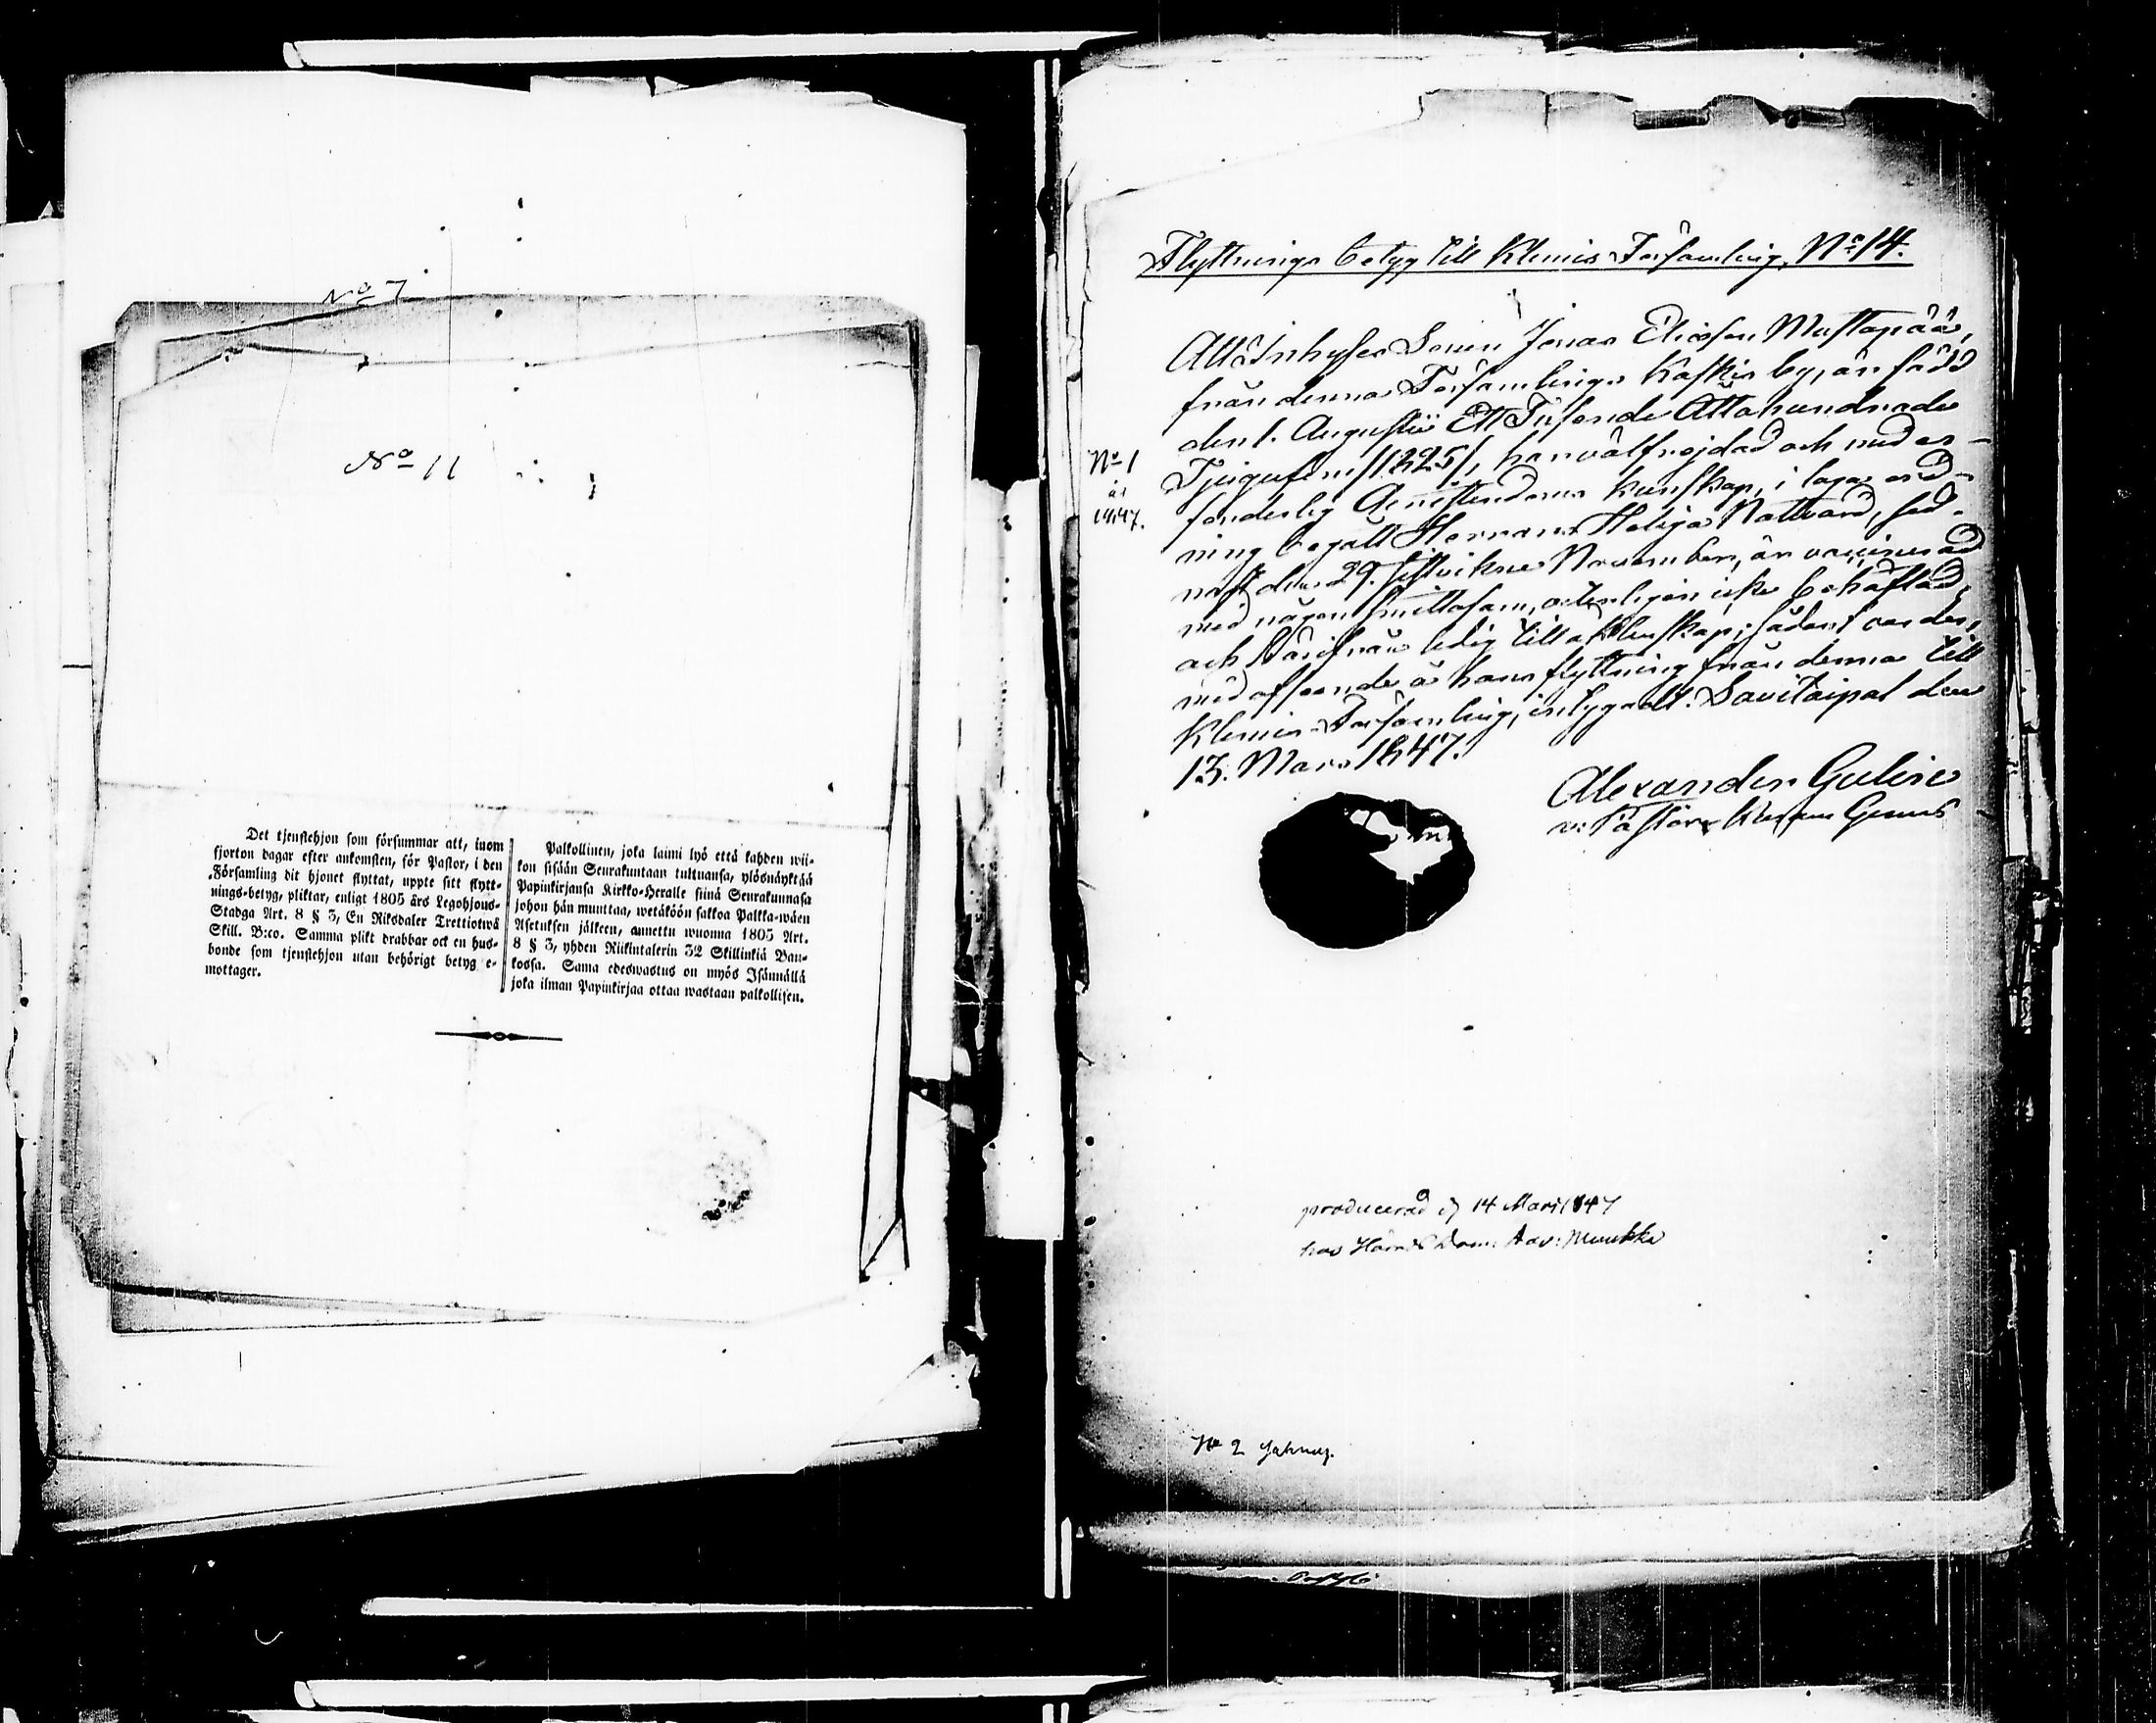 No 7
No 11
Det tjenstehjon som försummar att, inom
fjorton dagar efter ankomsten, för Pastor, i den
Församling dit hjonet flyttat, uppte sitt flytt-
nings-betyg, pliktar, enligt 1805 års Legohjons-
Stadga Art. 8 § 3, En Riksdaler Trettiotwå
Skill. B:co. Samma plikt drabbar ock en hus-
bonde som tjenstehjon utan behörigt betyg e-
mottager.
Palkollinen, joka laimi lyö että kahden wii-
kon sisään Seurakuntaan tultuansa, ylösnäyktää
Papinkirjansa Kirkko-Heralle siinä Seurakunnasa
johon hän muuttaa, wetäköön sakkoa Palkka-wäen
Asetuksen jälkeen, annettu wuonna 1805 Art.
8 § 3, yhden Riikintalerin 32 Skillinkiä Ban-
kossa. Sama edeswastus on myös Isännällä
joka ilman Papinkirjaa ottaa wastaan palkollisen.
Flyttnings betyg till Klemis Församling, No 14.
Att Inhyses Sonen Jonas Eliasson Mustapää,
från denna Församlings Kaskis by, är född
den 1. Augusti Ett Tusende Åttahundrade
Tjugufem /1825/, har välfrejdad och med er-
forderlig Christendoms kunskap, i laga ord-
ning begått Herrans Heliga Nattvard, sed-
nast den 29. sistvikne November, är vaccinerad
med någon smittosam, icke behäftad,
och härifrån ledig till äktenskap; sådant varder,
med afseende å hans flyttning från denna till
Klemis Församling, intygadt. Savitaipal den
13. Mars 1847.
Alexander
v: Pastor
No 1
år
1847.
producerad d 14 Mars 1847
No 2